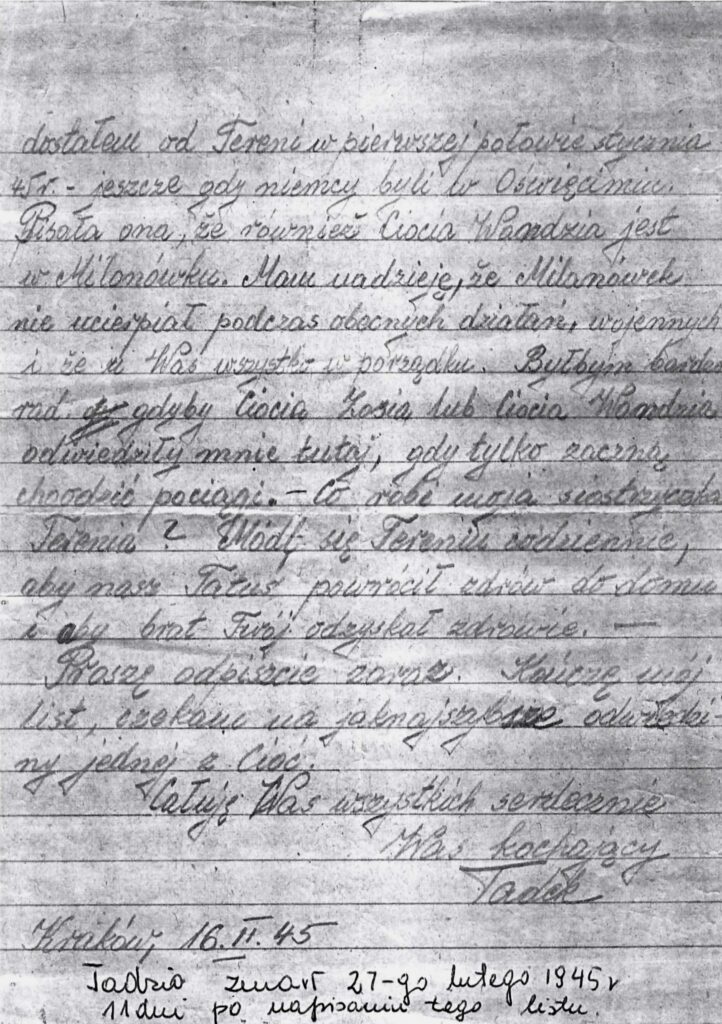 dostałem od Tereni w pierwszej połowie stycznia
45r. - jeszcze gdy niemcy byli w Oświęcimiu.
Pisała ona, że również Ciocia Wandzia jest
w Milanówku. Mam nadzieję, że Milanówek
nie ucierpiał podczas obecnych działań, wojennych
i że u Was wszystko w porządku. Byłbym bardzo
rad gdyby Ciocia Zosia lub Ciocia Wandzia
odwiedziły mnie tutaj, gdy tylko zaczną
choodzić pociągi. - Co robi moja siostrzyczka
Terenia? Módl się Tereniu codziennie,
aby nasz Tatuś powrócił zdrów do domu
i aby brat Twój odzyskał zdrowie. —
Proszę odpiszcie zaraz. Kończę mój
list, czekam na jaknajszybsze odwiedzi
ny jednej z Cioć.
Całuję Was wszystkich serdecznie
Was kochający
Tadek
Kraków, 16.II.45
Tadzio zmarł 27-go lutego 1945 r
11 dni po napisaniu tego listu.